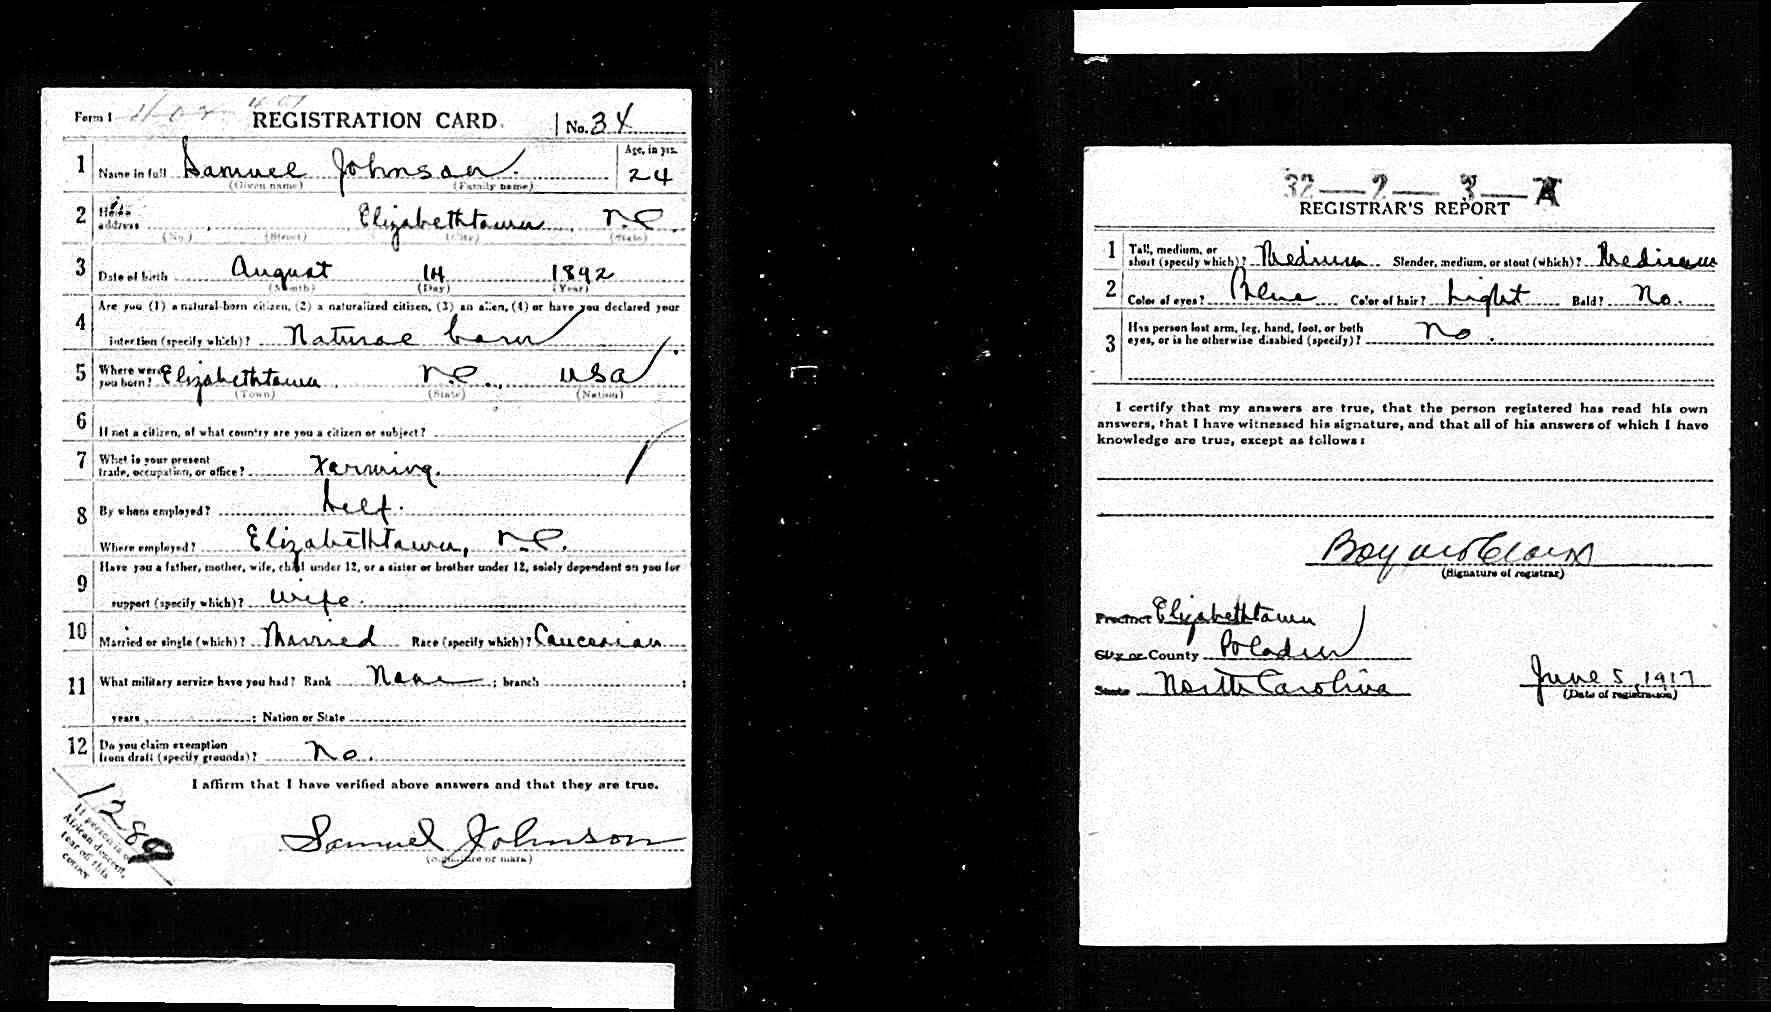 Form 1 REGISTRATION CARD. No. 34
1 Name in full Samuel Johnson. Age, in yrs. 24
(Given name) (Family name)
2 Home address Elizabethtown N.C.
(No.) (Street) (City) (State)
3 Date of birth August 14 1892
(Month) (Day) (Year)
4 Are you (1) a natural-born citizen, (2) a naturalized citizen, (3) an alien, (4) or have you declared your
intention (specify which)? Natural born
5 Where were you born? Elizabethtown, N.C., USA
(Town) (State) (Nation)
6 If not a citizen, of what country are you a citizen or subject?
7 What is your present
trade, occupation, or office? Farming.
8 By whom employed? Self.
Where employed? Elizabethtown, N.C.
9 Have you a father, mother, wife, child under 12, or a sister or brother under 12, solely dependent on you for
support (specify which)? Wife.
10 Married or single (which)? Married Race (specify which)? Caucasian
11 What military service have you had? Rank None ; branch ;
years ; Nation or State
12 Do you claim exemption
from draft (specify grounds)? No.
I affirm that I have verified above answers and that they are true.
Samuel Johnson
(Signature or mark)
1289
If person is of
African descent,
tear off this
corner
32—2—3—A
REGISTRAR'S REPORT
1 Tall, medium, or
short (specify which)? Medium Slender, medium, or stout (which)? Medium
2 Color of eyes? Blue Color of hair? Light Bald? No.
3 Has person lost arm, leg, hand, foot, or both
eyes, or is he otherwise disabled (specify)? No.
I certify that my answers are true, that the person registered has read his own
answers, that I have witnessed his signature, and that all of his answers of which I have
knowledge are true, except as follows:
(Signature of registrar)
Precinct Elizabethtown
City or County Bladen
State North Carolina
June 5, 1917
(Date of registration)